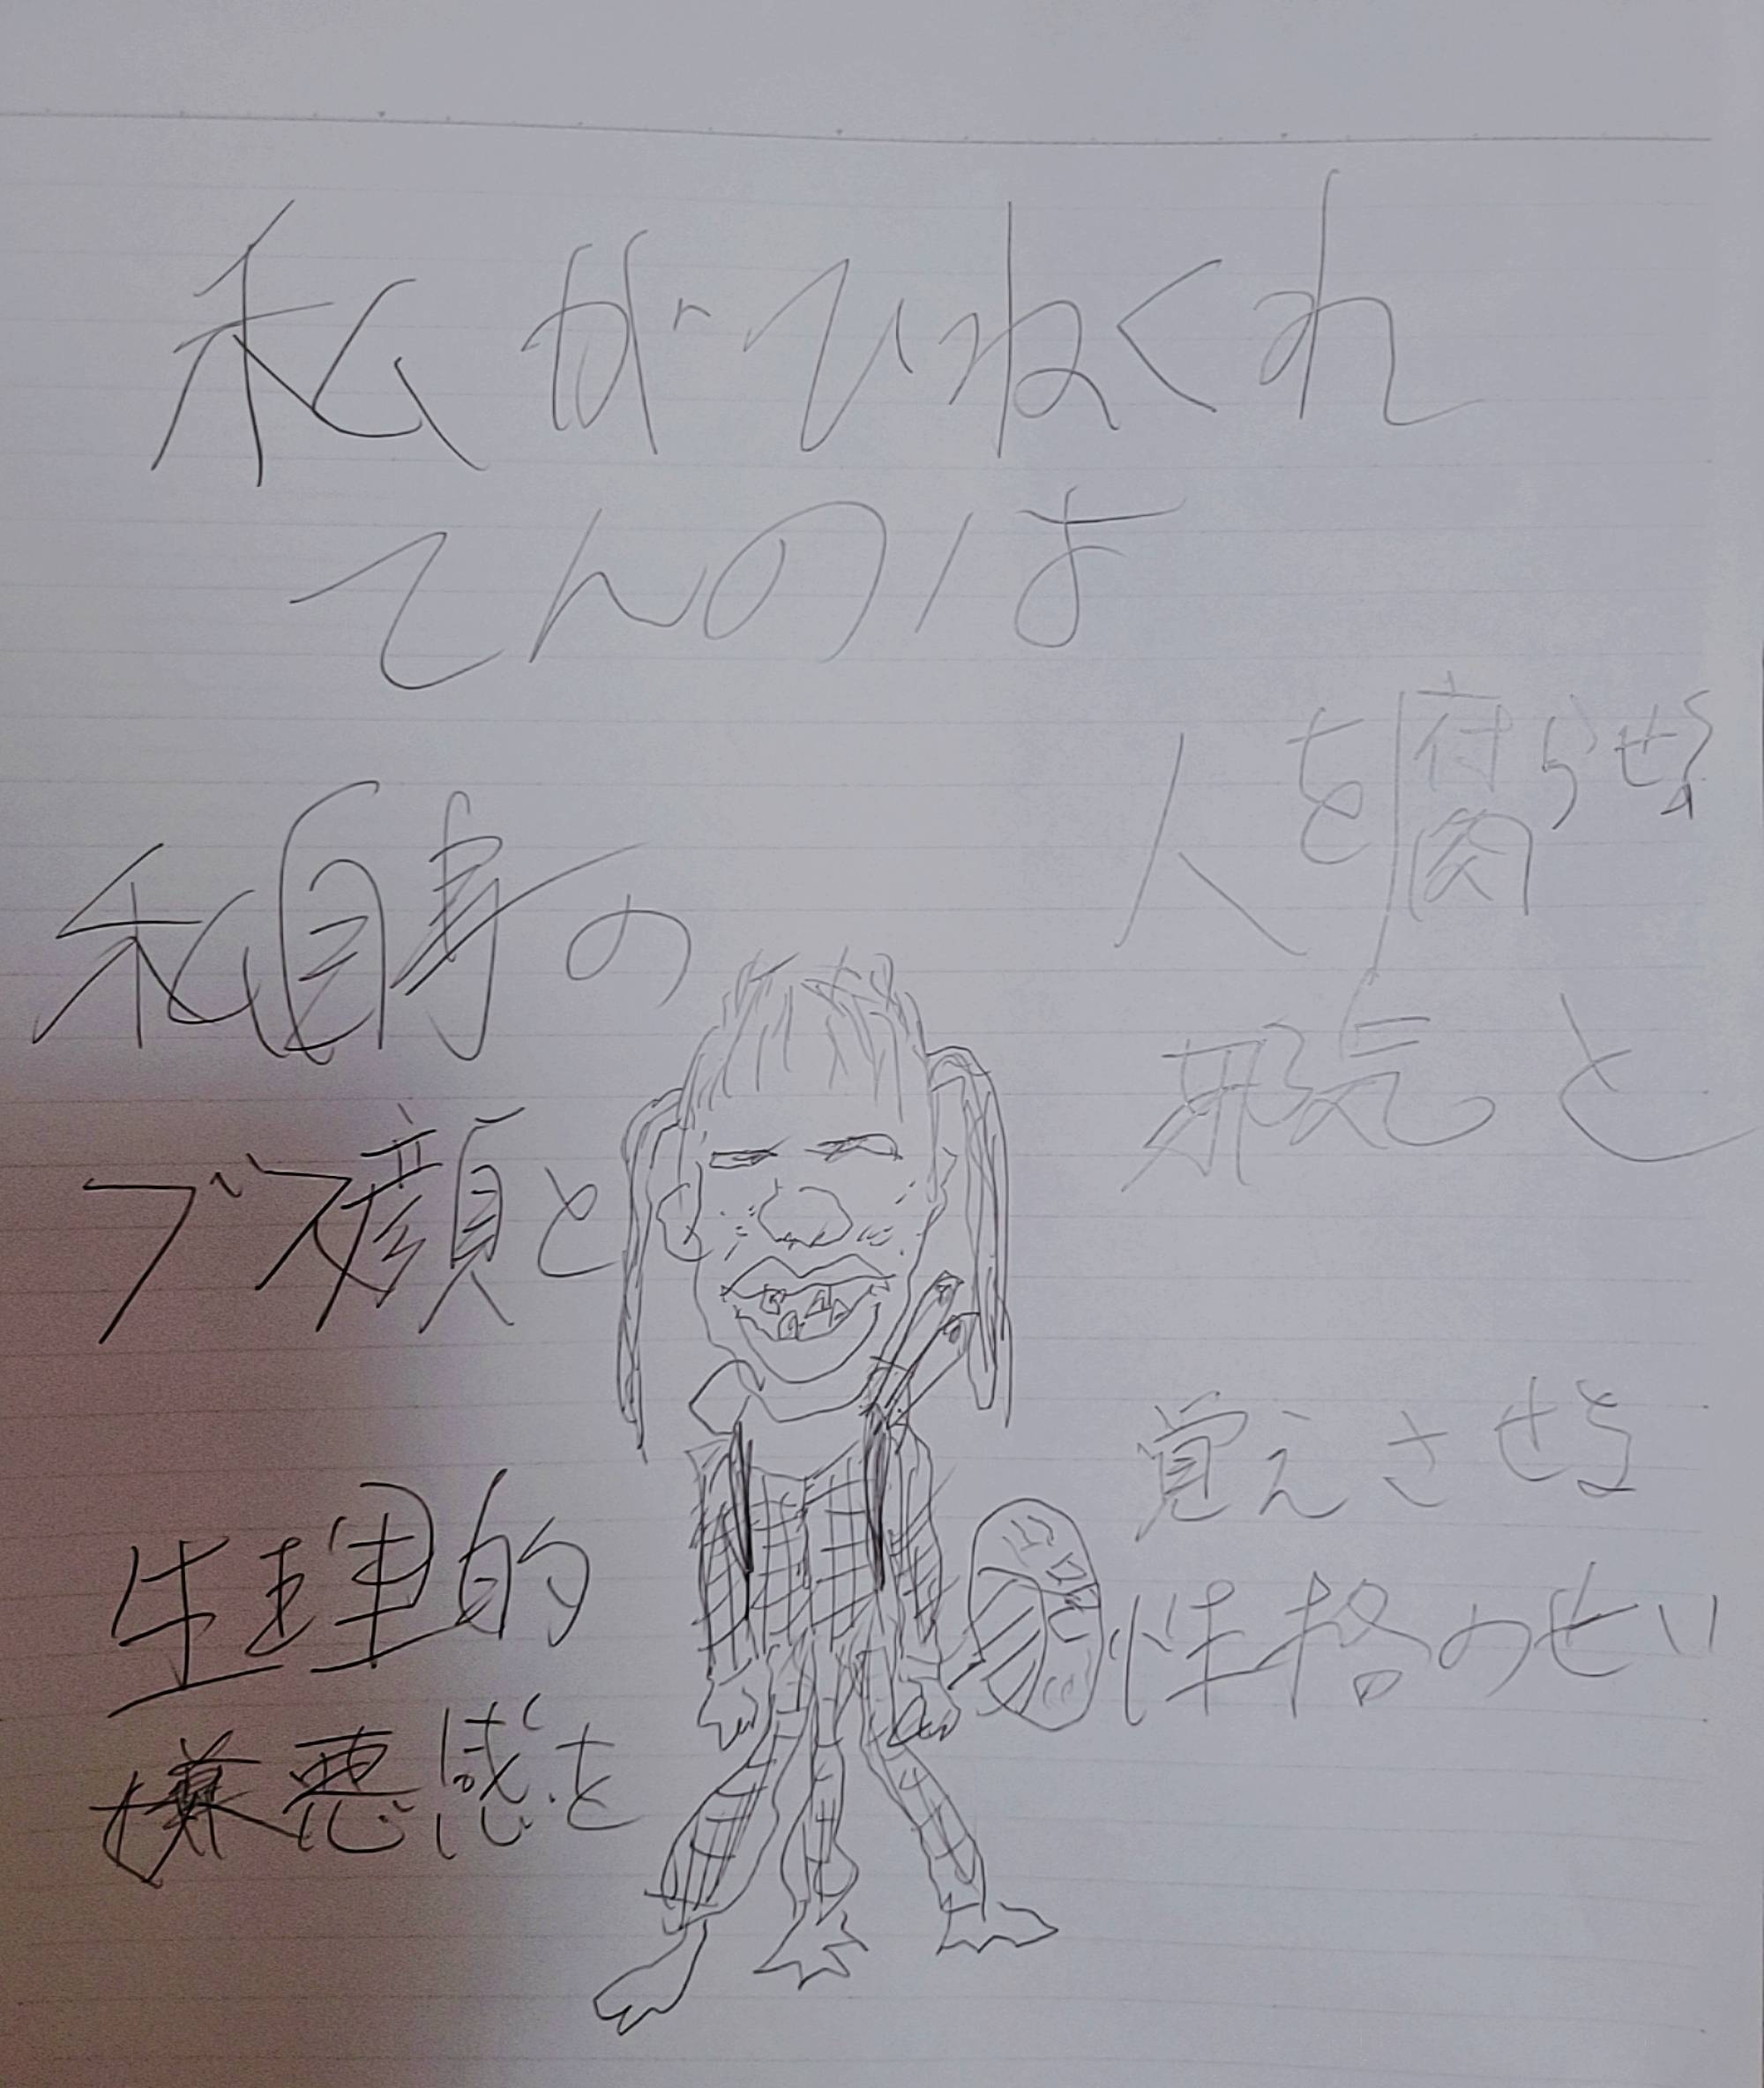 私がひねくれ
てんのは
私自身の
ブス顔と
人を腐らせる
邪気と
生理的
嫌悪感を
覚えさせる
性格のせい